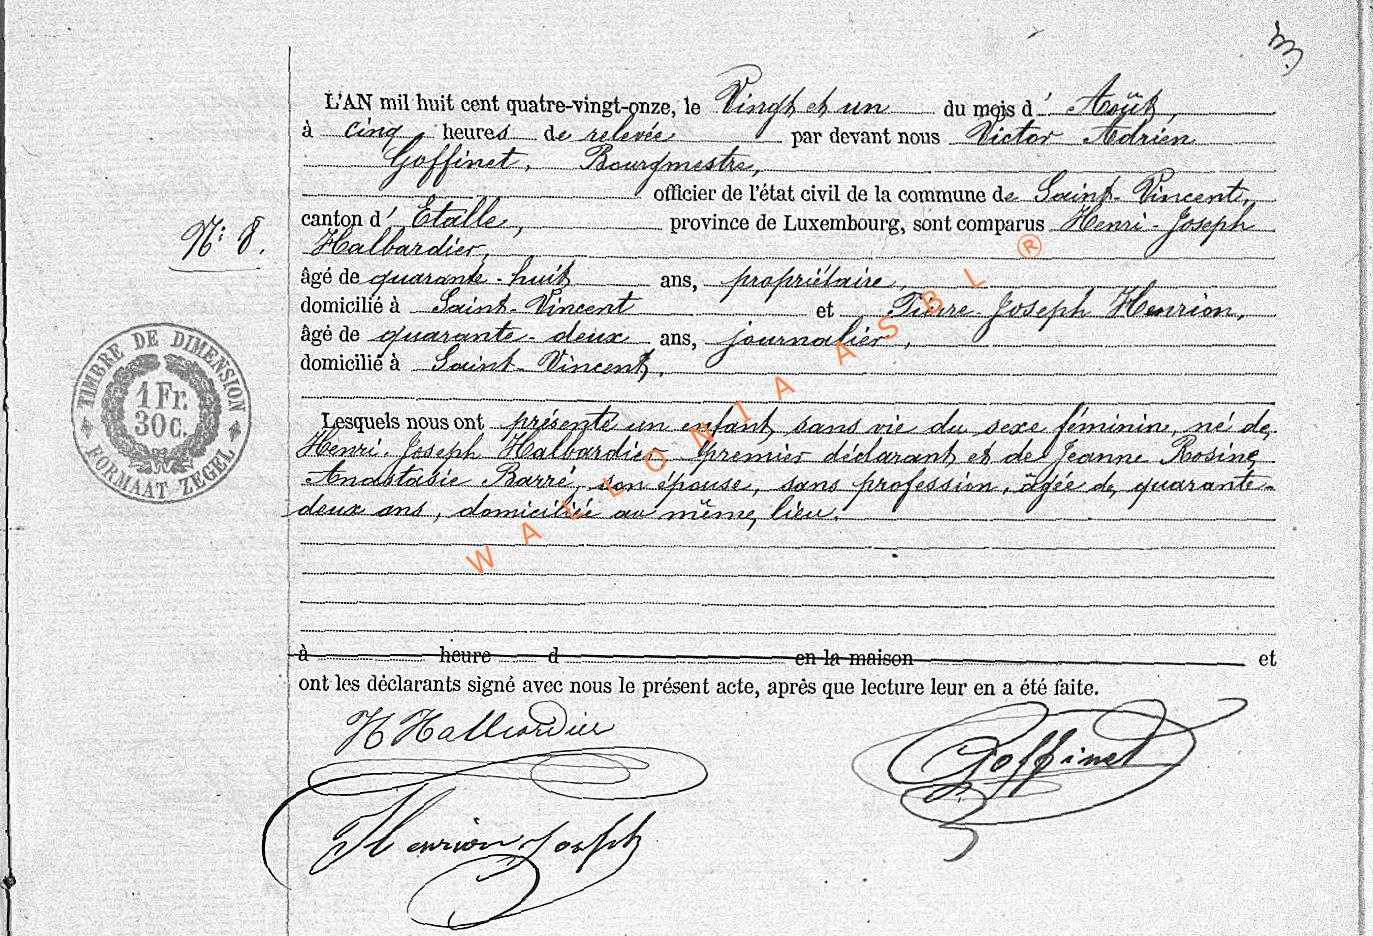 L'AN mil huit cent quatre-vingt-onze, le Vingt et un du mois d' Août,
à cinq heures de relevée par devant nous Victor Adrien
Goffinet, Bourgmestre,
officier de l'état civil de la commune de Saint-Vincent,
canton d' Etalle, province de Luxembourg, sont comparus Henri-Joseph
Halbardier,
âgé de quarante-huit ans, propriétaire,
domicilié à Saint-Vincent et Pierre-Joseph Henrion,
âgé de quarante-deux ans, journalier,
domicilié à Saint-Vincent,
N: 8.
TIMBRE DE DIMENSION
1 Fr.
30 c.
FORMAAT ZEGEL
Lesquels nous ont présenté un enfant sans vie du sexe féminin, né de
Henri-Joseph Halbardier, premier déclarant et de Jeanne Rosine
Anastasie Barré, son épouse, sans profession, âgée de quarante-
deux ans, domiciliée au même lieu.
à heure d en la maison et
ont les déclarants signé avec nous le présent acte, après que lecture leur en a été faite.
H Halbardier
Goffinet
Henrion Joseph
WALLONIA ASBL ®